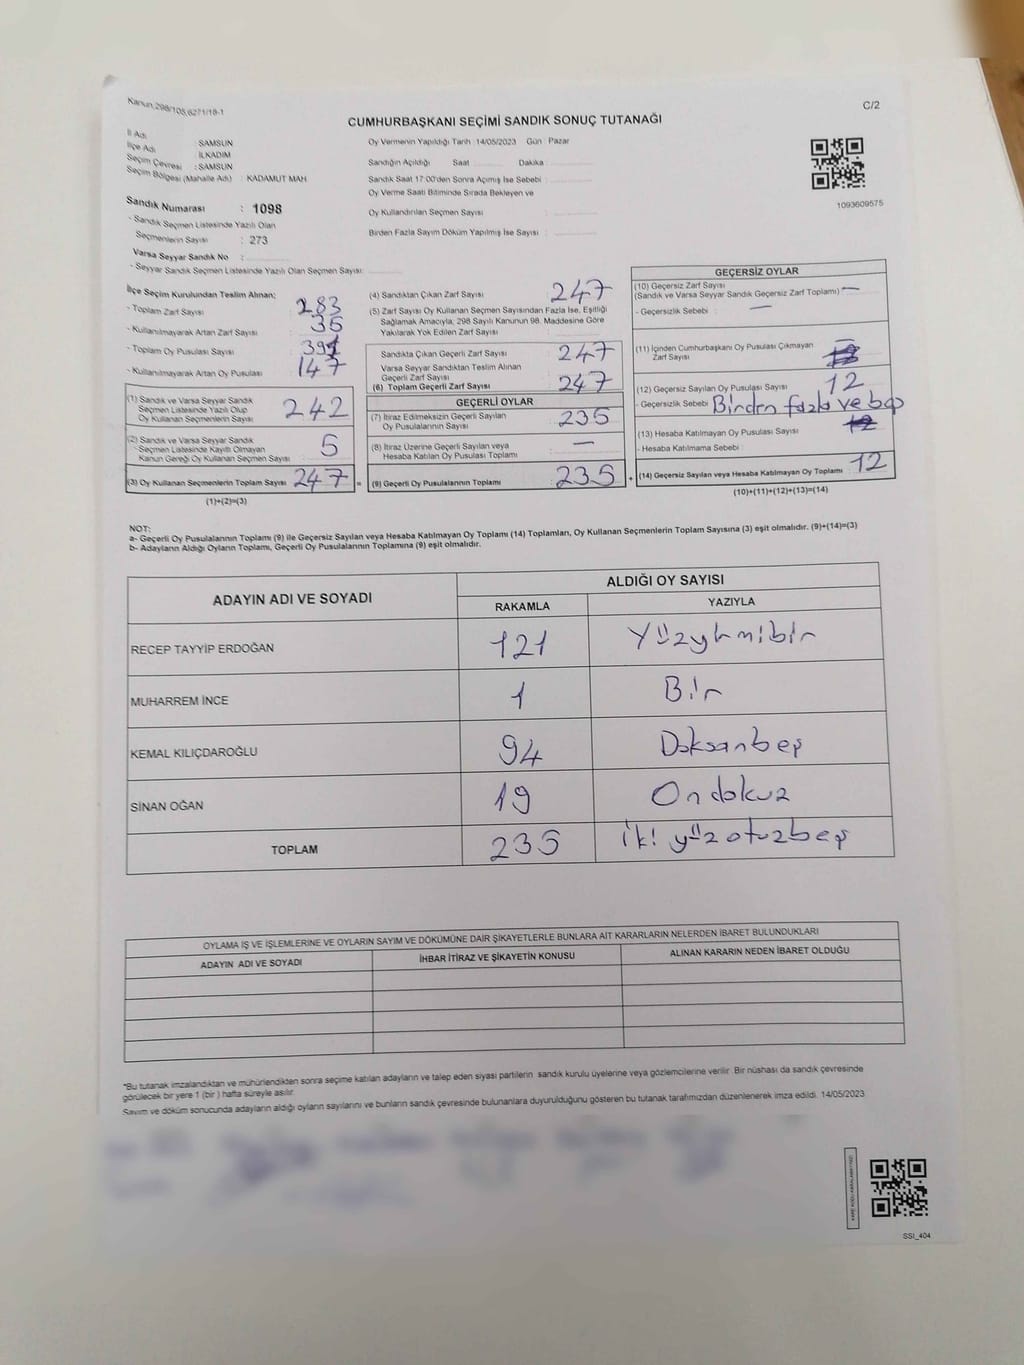 Kanun,298/105,6271/18-1
C/2
CUMHURBAŞKANI SEÇİMİ SANDIK SONUÇ TUTANAĞI
İl Adı : SAMSUN
İlçe Adı : İLKADIM
Seçim Çevresi : SAMSUN
Seçim Bölgesi (Mahalle Adı) : KADAMUT MAH
Sandık Numarası : 1098
- Sandık Seçmen Listesinde Yazılı Olan
Seçmenlerin Sayısı : 273
Varsa Seyyar Sandık No :
- Seyyar Sandık Seçmen Listesinde Yazılı Olan Seçmen Sayısı:
Oy Vermenin Yapıldığı Tarih : 14/05/2023 Gün : Pazar
Sandığın Açıldığı Saat Dakika :
Sandık Saat 17:00'den Sonra Açımış İse Sebebi :
Oy Verme Saati Bitiminde Sırada Bekleyen ve
Oy Kullandırılan Seçmen Sayısı :
Birden Fazla Sayım Döküm Yapılmış İse Sayısı :
1093609575
İlçe Seçim Kurulundan Teslim Alınan;
- Toplam Zarf Sayısı : 283
- Kullanılmayarak Artan Zarf Sayısı : 36
- Toplam Oy Pusulası Sayısı :
- Kullanılmayarak Artan Oy Pusulası : 147
(1) Sandık ve Varsa Seyyar Sandık
Seçmen Listesinde Yazılı Olup
Oy Kullanan Seçmenlerin Sayısı : 242
(2) Sandık ve Varsa Seyyar Sandık
Seçmen Listesinde Kayıtlı Olmayan
Kanun Gereği Oy Kullanan Seçmen Sayısı : 5
(3) Oy Kullanan Seçmenlerin Toplam Sayısı : 247 =
(1)+(2)=(3)
(4) Sandıktan Çıkan Zarf Sayısı : 247
(5) Zarf Sayısı Oy Kullanan Seçmen Sayısından Fazla İse, Eşitliği
Sağlamak Amacıyla, 298 Sayılı Kanunun 98. Maddesine Göre
Yakılarak Yok Edilen Zarf Sayısı :
Sandıkta Çıkan Geçerli Zarf Sayısı : 247
Varsa Seyyar Sandıktan Teslim Alınan
Geçerli Zarf Sayısı :
(6) Toplam Geçerli Zarf Sayısı : 247
GEÇERLİ OYLAR
(7) İtiraz Edilmeksizin Geçerli Sayılan
Oy Pusulalarının Sayısı : 235
(8) İtiraz Üzerine Geçerli Sayılan veya
Hesaba Katılan Oy Pusulası Toplamı : —
(9) Geçerli Oy Pusulalarının Toplamı : 235 +
GEÇERSİZ OYLAR
(10) Geçersiz Zarf Sayısı
(Sandık ve Varsa Seyyar Sandık Geçersiz Zarf Toplamı) : —
- Geçersizlik Sebebi : —
(11) İçinden Cumhurbaşkanı Oy Pusulası Çıkmayan
Zarf Sayısı :
(12) Geçersiz Sayılan Oy Pusulası Sayısı : 12
- Geçersizlik Sebebi : Birden fazla ve boş
(13) Hesaba Katılmayan Oy Pusulası Sayısı :
- Hesaba Katılmama Sebebi :
(14) Geçersiz Sayılan veya Hesaba Katılmayan Oy Toplamı : 12
(10)+(11)+(12)+(13)=(14)
NOT:
a- Geçerli Oy Pusulalarının Toplamı (9) ile Geçersiz Sayılan veya Hesaba Katılmayan Oy Toplamı (14) Toplamları, Oy Kullanan Seçmenlerin Toplam Sayısına (3) eşit olmalıdır. (9)+(14)=(3)
b- Adayların Aldığı Oyların Toplamı, Geçerli Oy Pusulalarının Toplamına (9) eşit olmalıdır.
ADAYIN ADI VE SOYADI
ALDIĞI OY SAYISI
RAKAMLA YAZIYLA
RECEP TAYYİP ERDOĞAN 121 Yüzyirmibir
MUHARREM İNCE 1 Bir
KEMAL KILIÇDAROĞLU 94 Doksanbeş
SİNAN OĞAN 19 Ondokuz
TOPLAM 235 İki yüzotuzbeş
OYLAMA İŞ VE İŞLEMLERİNE VE OYLARIN SAYIM VE DÖKÜMÜNE DAİR ŞİKAYETLERLE BUNLARA AİT KARARLARIN NELERDEN İBARET BULUNDUKLARI
ADAYIN ADI VE SOYADI İHBAR İTİRAZ VE ŞİKAYETİN KONUSU ALINAN KARARIN NEDEN İBARET OLDUĞU
*Bu tutanak imzalandıktan ve mühürlendikten sonra seçime katılan adayların ve talep eden siyasi partilerin sandık kurulu üyelerine veya gözlemcilerine verilir. Bir nüshası da sandık çevresinde
görülecek bir yere 1 (bir ) hafta süreyle asılır.
Sayım ve döküm sonucunda adayların aldığı oyların sayılarını ve bunların sandık çevresinde bulunanlara duyurulduğunu gösteren bu tutanak tarafımızdan düzenlenerek imza edildi. 14/05/2023
SSI_404